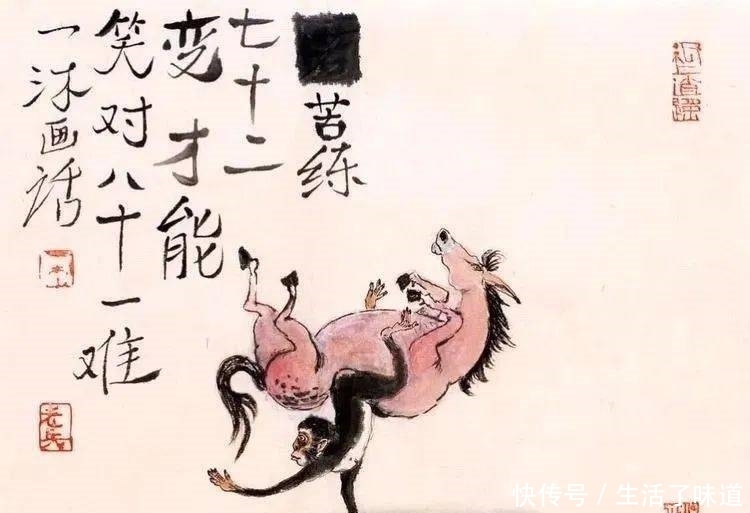 苦练
七十二
变才能
笑对八十一难
一沐画话
快传号/生活了味道